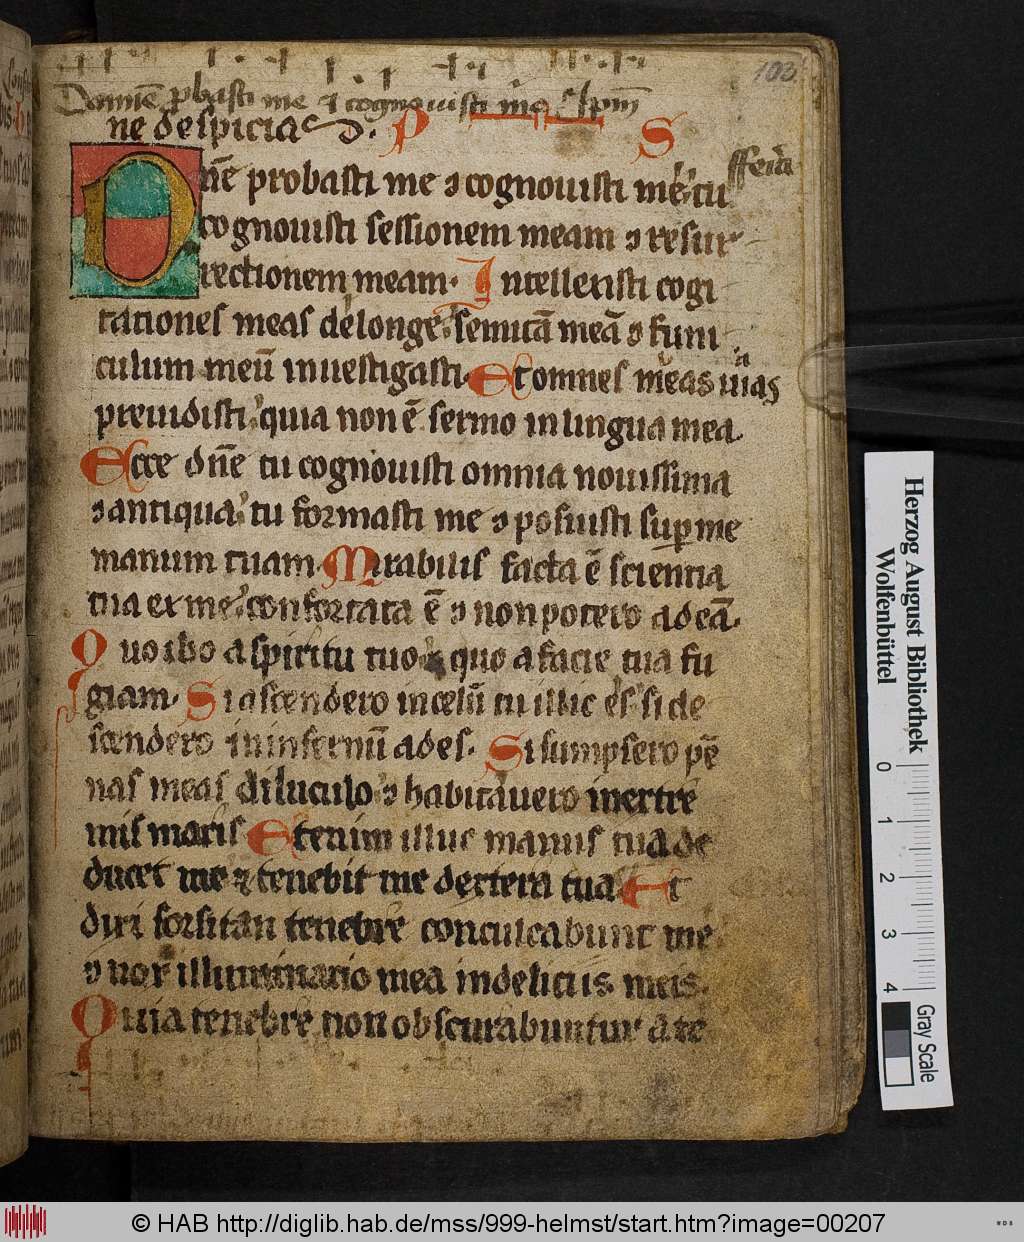 103
Domīe ꝓbasti me ⁊ cognouisti me
ne despicias d. P S
Dñe probasti me ⁊ cognouisti me tu
feria
cognouisti sessionem meam ⁊ resur
rectionem meam. Intellexisti cogi
tationes meas de longe semitā meā ⁊ funi
culum meū inuestigasti. Et omnes meas uias
preuidisti quia non ē sermo in lingua mea.
Ecce dñe tu cognouisti omnia nouissima
⁊ antiqua tu formasti me ⁊ posuisti suꝑ me
manum tuam. Mirabilis facta ē scientia
tua ex me confortata ē ⁊ non potero ad eā.
Quo ibo a spiritu tuo ⁊ quo a facie tua fu
giam. Si ascendero in celū tu illic es si de
scendero in infernū ades. Si sumpsero pē
nas meas diluculo ⁊ habitauero in extre
mis maris Etenim illuc manus tua de
ducet me ⁊ tenebit me dextera tua Et
dixi forsitan tenebre conculcabunt me
⁊ nox illuminatio mea in deliciis meis.
Quia tenebre non obscurabuntur a te
Herzog August Bibliothek
Wolfenbüttel
0 1 2 3 4
Gray Scale
© HAB http://diglib.hab.de/mss/999-helmst/start.htm?image=00207